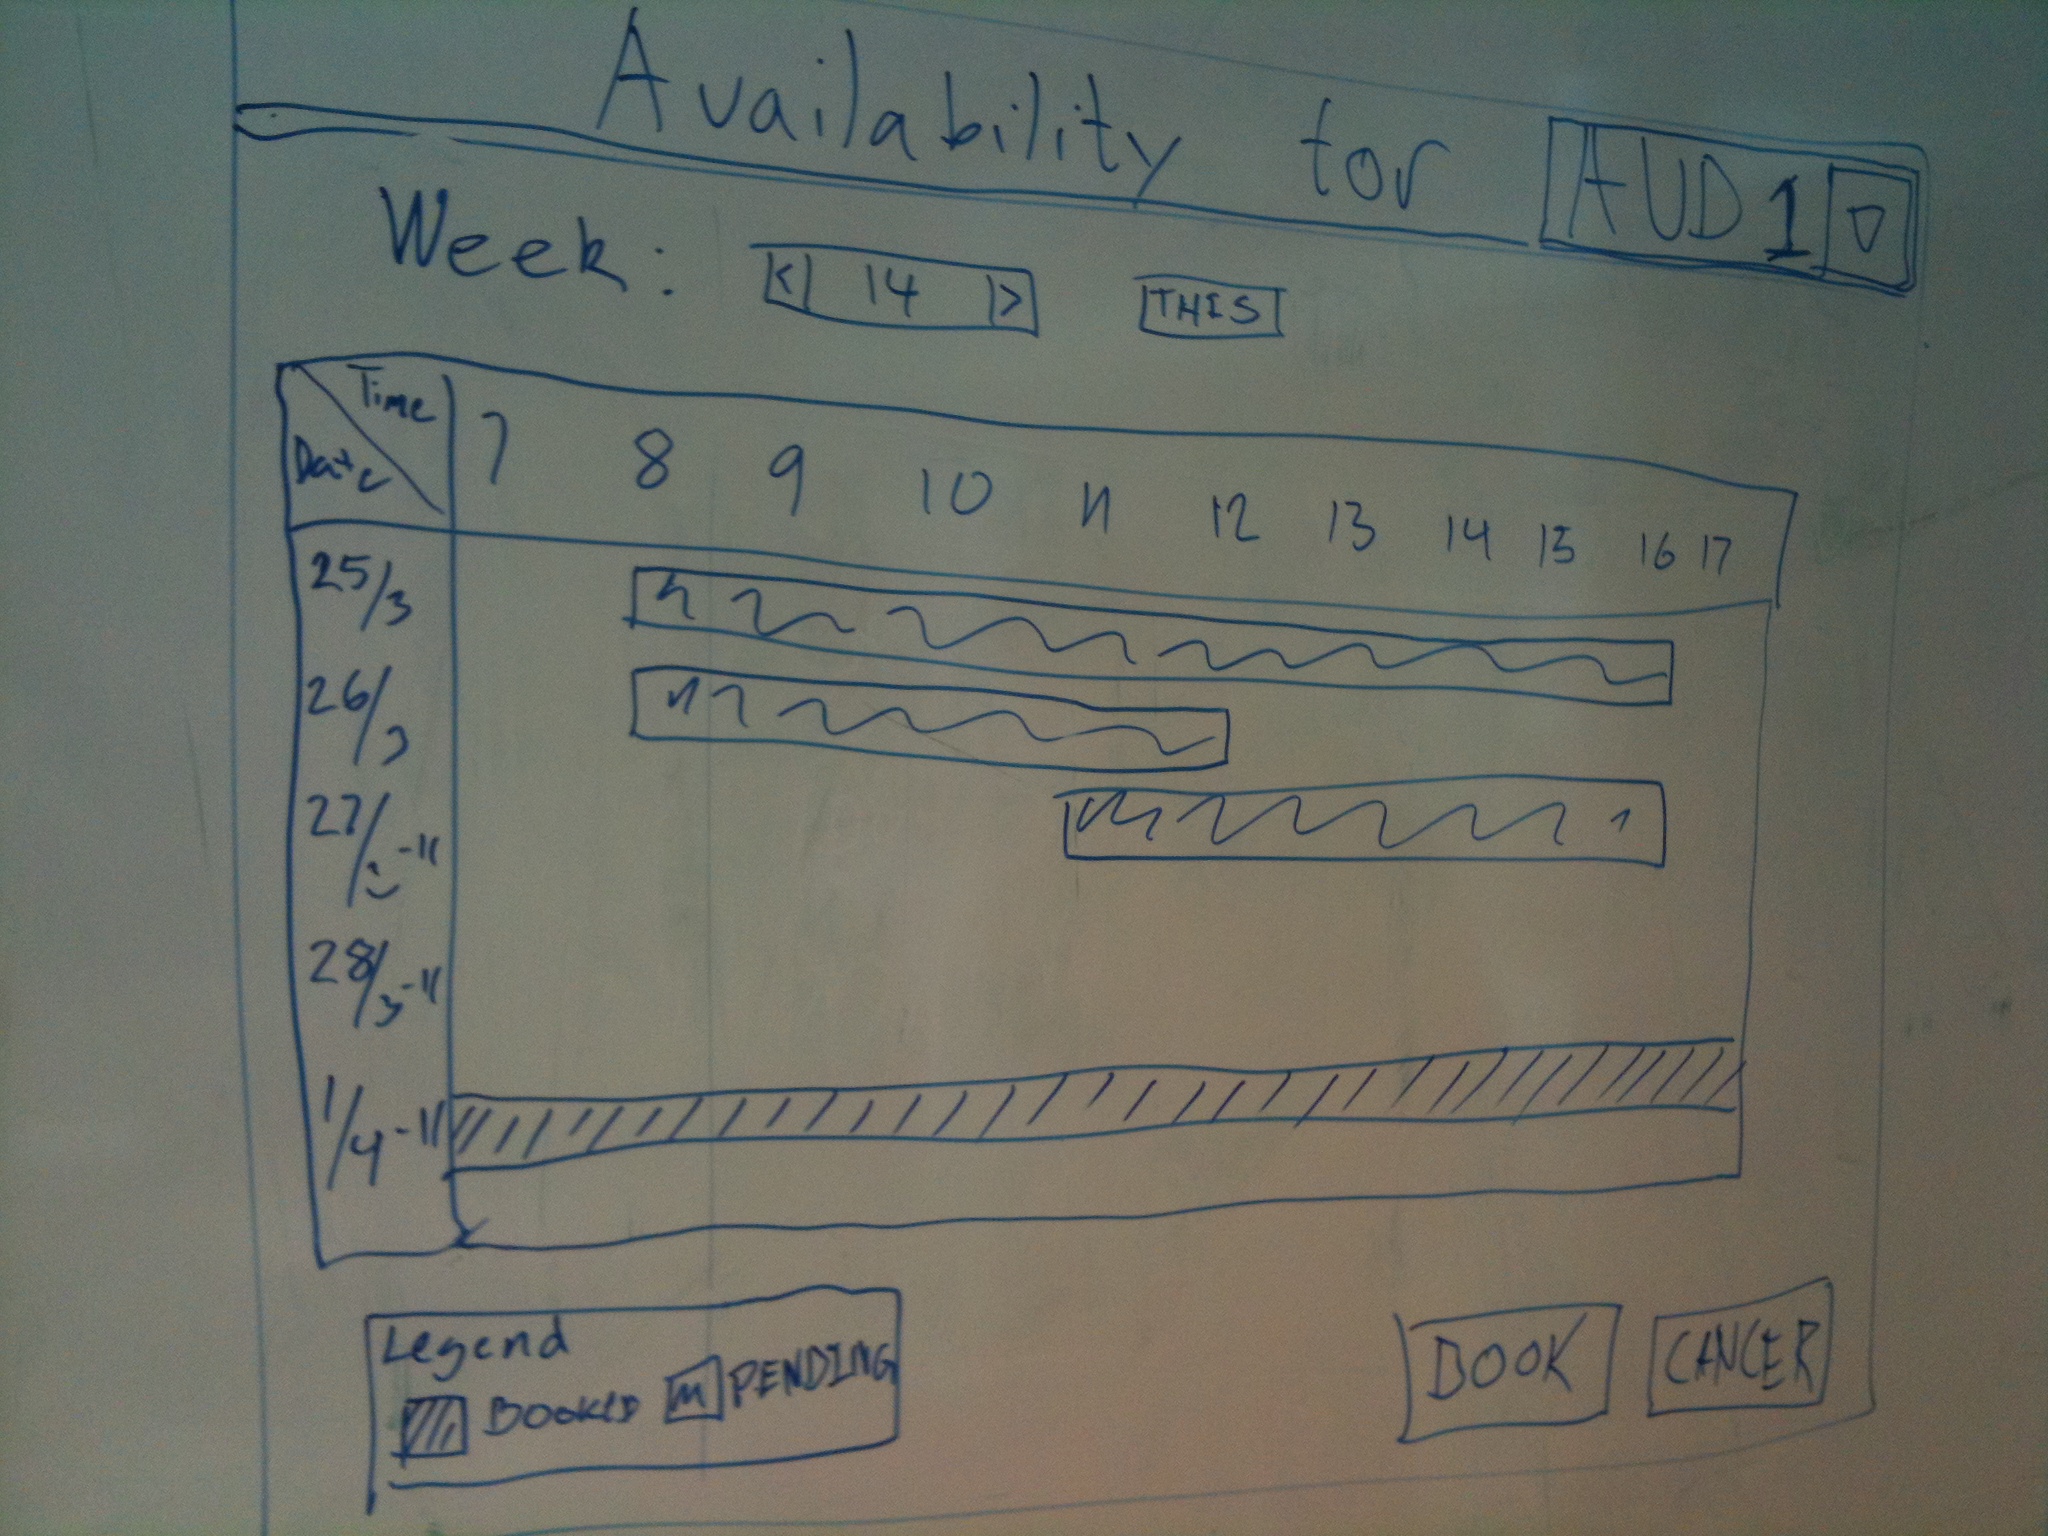 Availability for AUD 1
Week: < 14 > THIS
Time
Date
7 8 9 10 11 12 13 14 15 16 17
25/3
26/3
27/3-11
28/3-11
1/4-11
Legend
BOOKED PENDING
BOOK CANCER